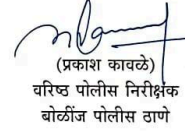 (प्रकाश कावळे)
वरिष्ठ पोलीस निरीक्षक
बोळींज पोलीस ठाणे